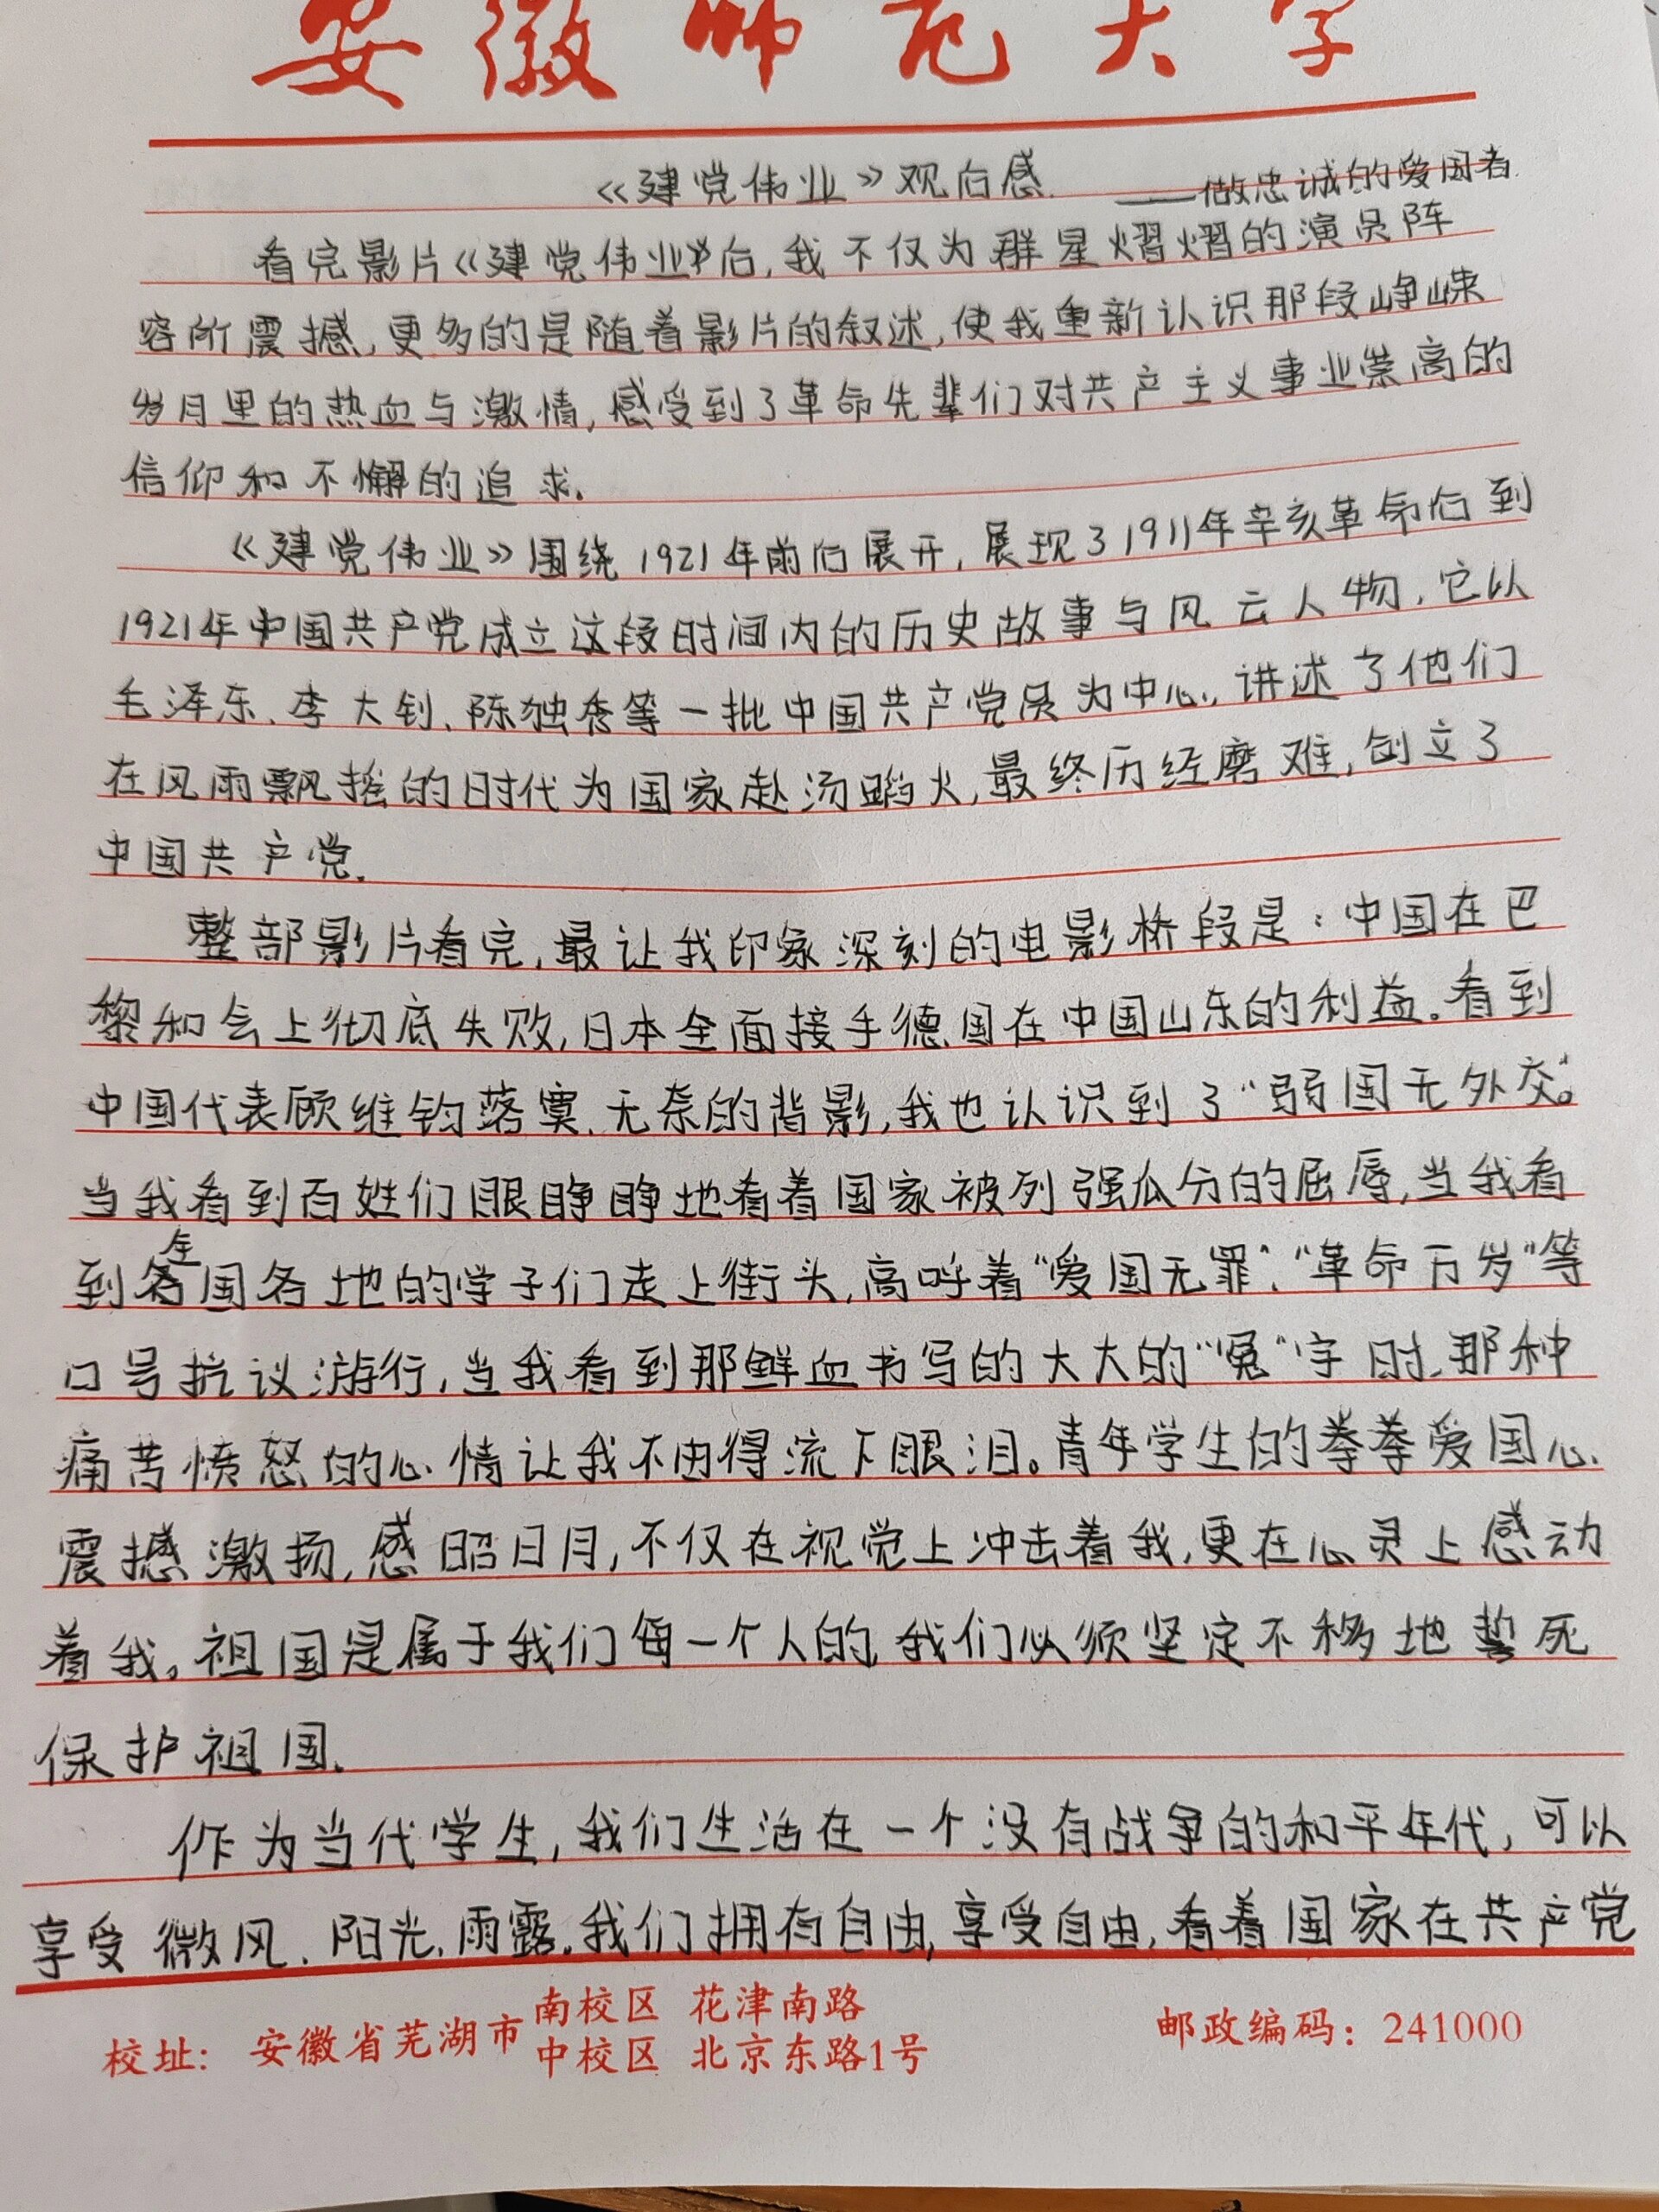 安徽师范大学
《建党伟业》观后感 ——做忠诚的爱国者
看完影片《建党伟业》后,我不仅为群星熠熠的演员阵
容所震撼,更多的是随着影片的叙述,使我重新认识那段峥嵘
岁月里的热血与激情,感受到了革命先辈们对共产主义事业崇高的
信仰和不懈的追求.
《建党伟业》围绕1921年前后展开,展现了1911年辛亥革命后到
1921年中国共产党成立这段时间内的历史故事与风云人物,它以
毛泽东、李大钊、陈独秀等一批中国共产党员为中心,讲述了他们
在风雨飘摇的时代为国家赴汤蹈火,最终历经磨难,创立了
中国共产党.
整部影片看完,最让我印象深刻的电影桥段是:中国在巴
黎和会上彻底失败,日本全面接手德国在中国山东的利益。看到
中国代表顾维钧落寞、无奈的背影,我也认识到了“弱国无外交”。
当我看到百姓们眼睁睁地看着国家被列强瓜分的屈辱,当我看
到全国各地的学子们走上街头,高呼着“爱国无罪”、“革命万岁”等
口号抗议游行,当我看到那鲜血书写的大大的“冤”字时,那种
痛苦愤怒的心情让我不由得流下眼泪。青年学生的拳拳爱国心、
震撼激扬,感昭日月,不仅在视觉上冲击着我,更在心灵上感动
着我。祖国是属于我们每一个人的,我们必须坚定不移地誓死
保护祖国.
作为当代学生,我们生活在一个没有战争的和平年代,可以
享受微风、阳光、雨露.我们拥有自由,享受自由,看着国家在共产党
校址: 安徽省芜湖市 南校区 花津南路
中校区 北京东路1号
邮政编码:241000